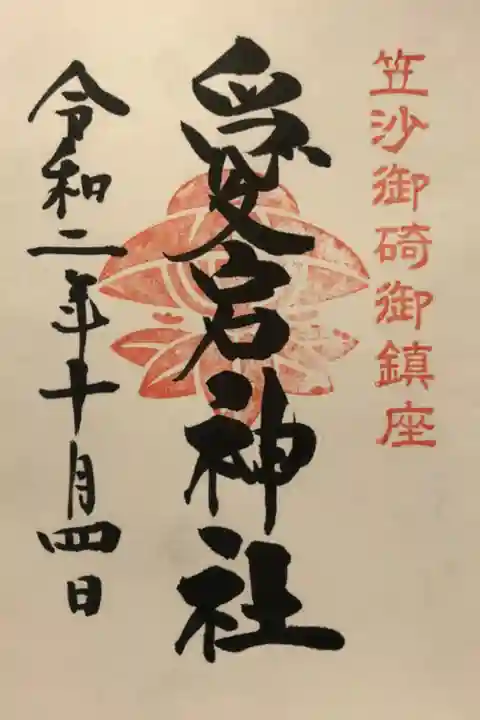 笠沙御碕御鎮座
愛宕神社
令和二年十月四日